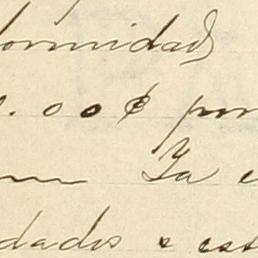 ormidad
.00¢ por
Ya e
dades e est